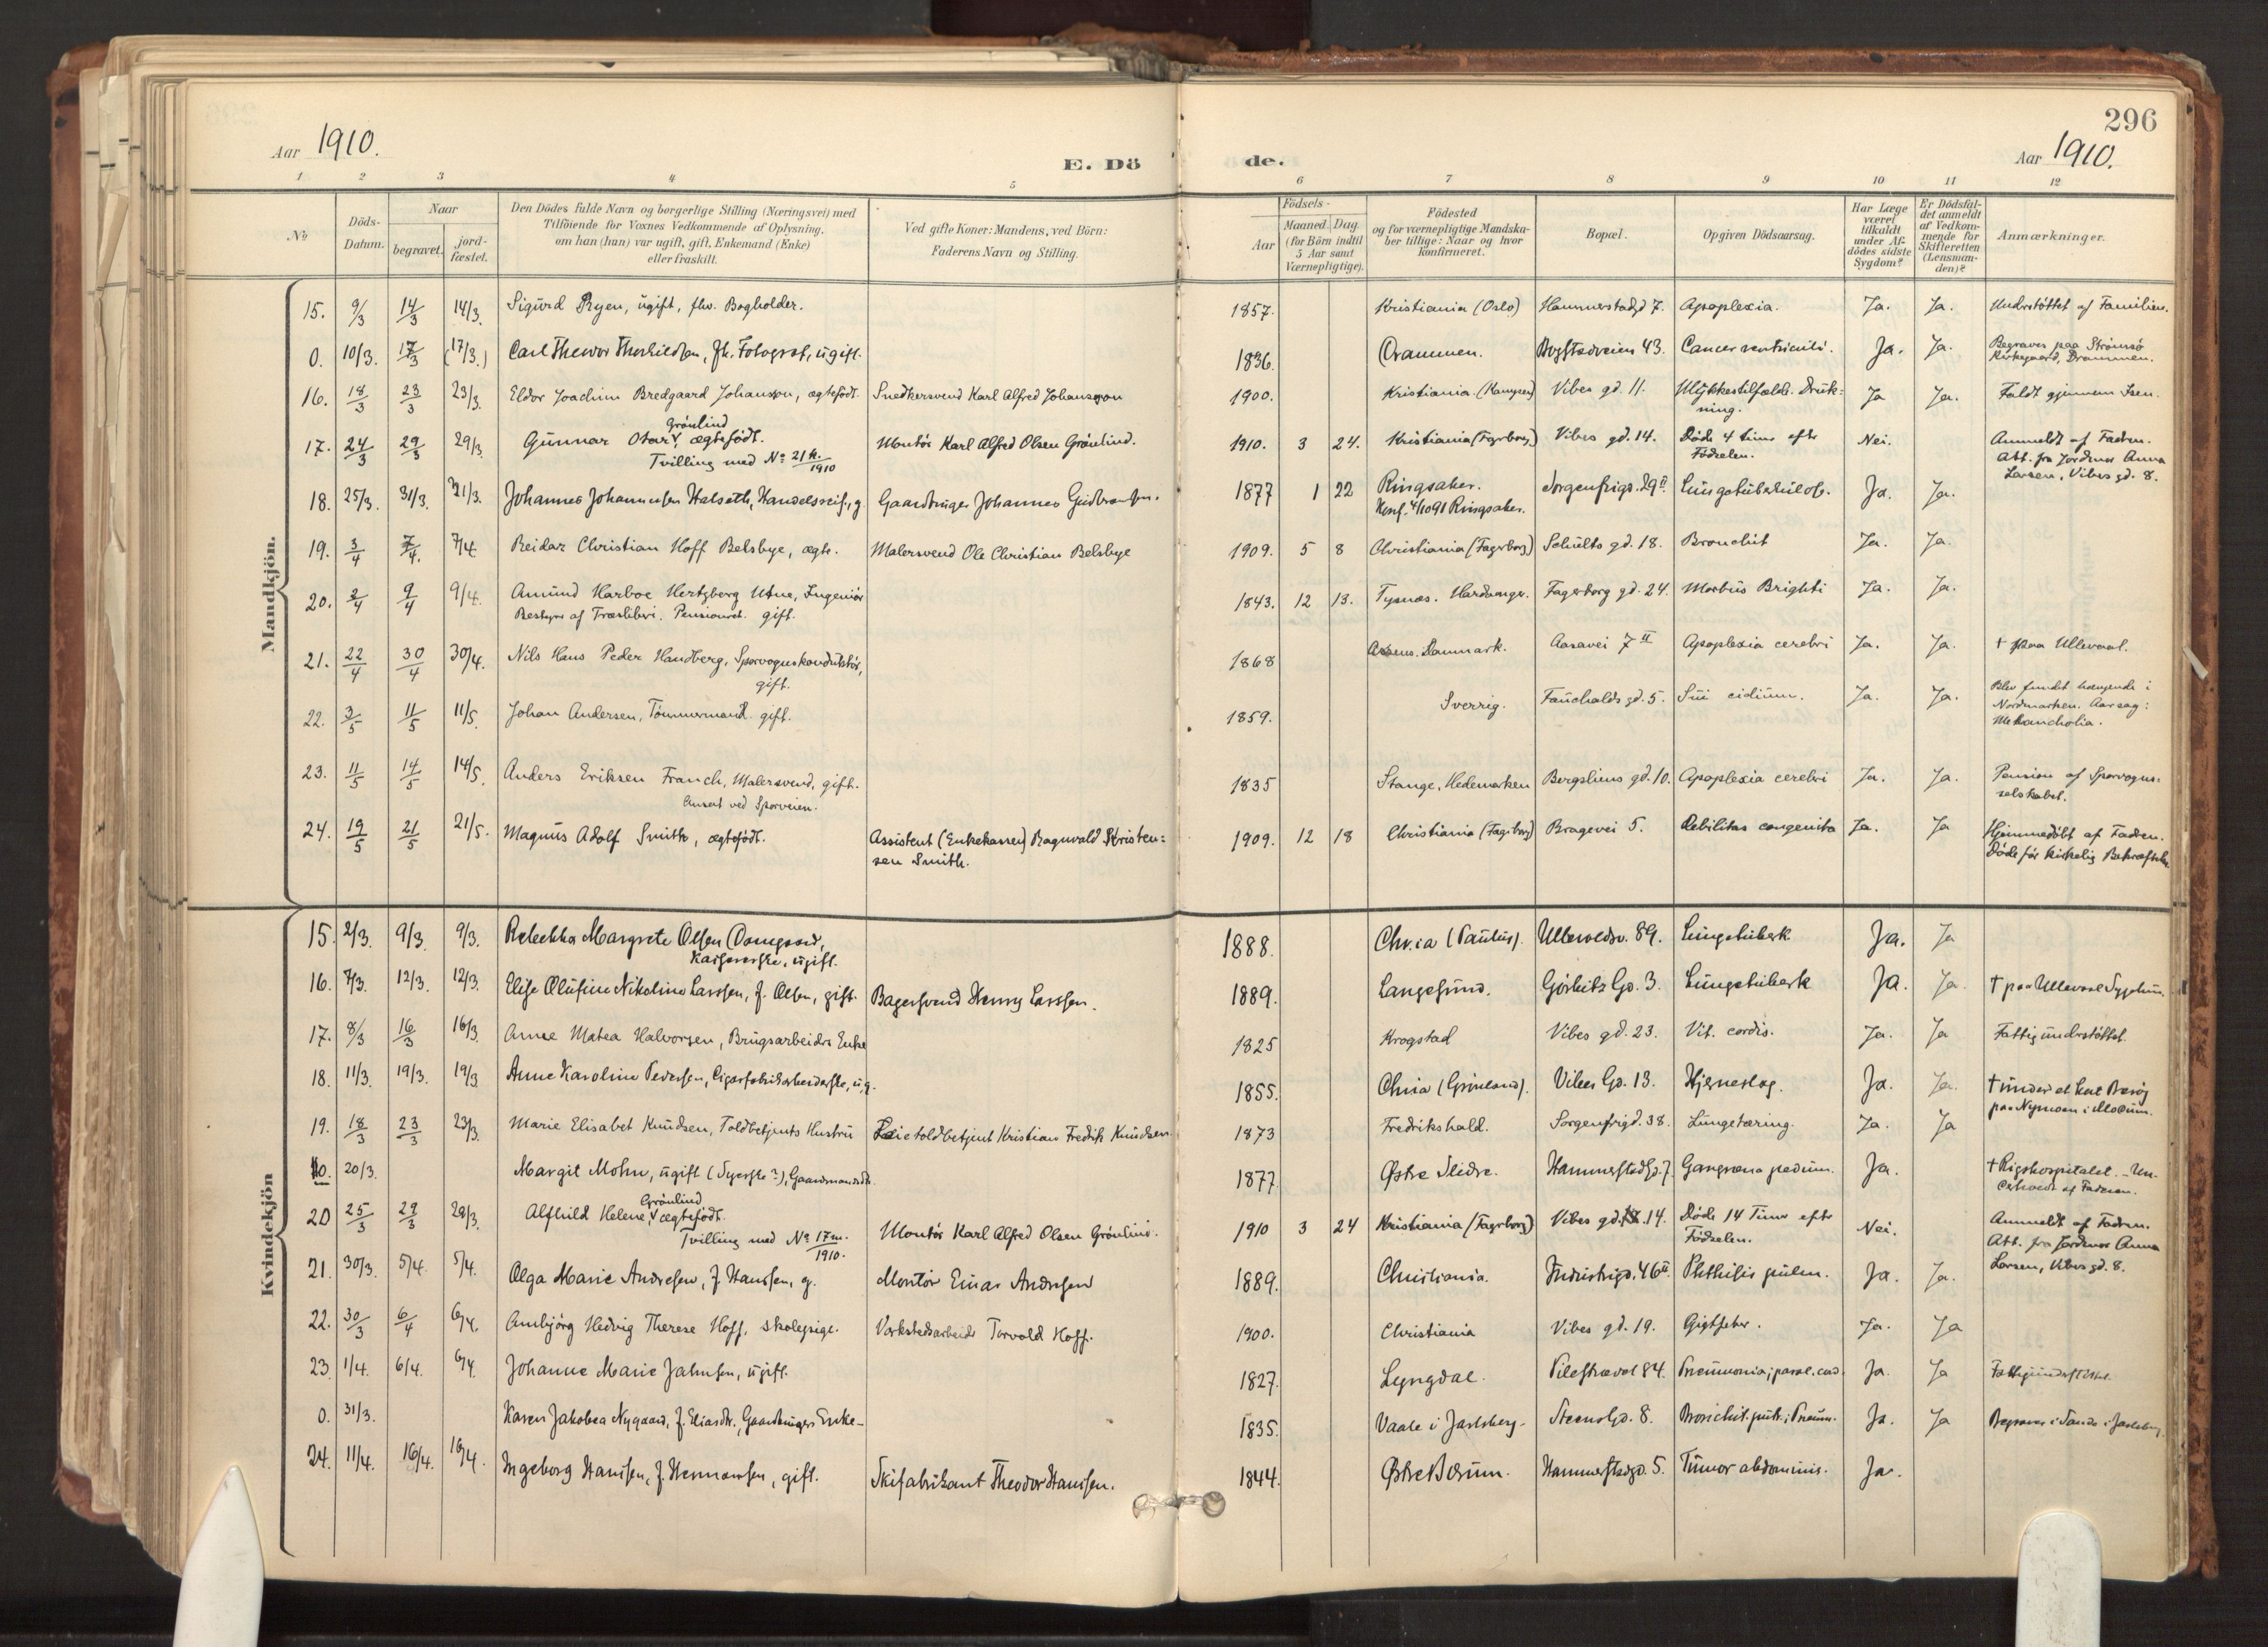 296
Aar 1910.
E. Dö
de.
Aar 1910.
1 2 3 4 5 6 7 8 9 10 11 12
No
Döds-
Datum.
Naar
begravet.
jord-
fæstet.
Den Dödes fulde Navn og borgerlige Stilling (Næringsvei) med
Tilföiende for Voxnes Vedkommende af Oplysning,
om han (hun) var ugift, gift, Enkemand (Enke)
eller fraskilt.
Ved gifte Koner: Mandens, ved Börn:
Faderens Navn og Stilling.
Födsels-
Aar
Maaned. Dag.
(for Börn indtil
5 Aar samt
Værnepligtige).
Födested
og for værnepligtige Mandska-
ber tillige: Naar og hvor
konfirmeret.
Bopæl.
Opgiven Dödsaarsag.
Har Læge
været
tilkaldt
under Af-
dödes sidste
Sygdom?
Er Dödsfal-
det anmeldt
af Vedkom-
mende for
Skifteretten
(Lensman-
den)?
Anmærkninger.
Mandkjön.
15. 9/3 14/3 14/3. Sigurd Ryen, ugift, fhv. Bogholder. 1857. Kristiania (Oslo) Hammerstadgd 7. Apoplexia. Ja. Ja. Understöttet af Familien.
0. 10/3. 17/3 (17/3.) Carl Thevor Thorkildsen, fh. Fotograf, ugift. 1836. Drammen. Bogstadveien 43. Cancer ventriculi. Ja. Ja. Begraves paa Strömsö
Kirkegaard, Drammen.
16. 18/3 23/3 23/3. Eldor Joachim Bredgaard Johansson, ægtefödt. Snedkersvend Karl Alfred Johansson 1900. Kristiania. (Kampen) Vibes gd. 11. Ulykkestilfælde. Druk-
ning. Ja Ja. Faldt gjennem Isen.
17. 24/3 29/3 29/3. Gunnar Oskar Grönlind, ægtefödt.
Tvilling med No 21 k. 1910 Montör Karl Alfred Olsen Grönlind. 1910. 3 24. Kristiania (Fagerborg) Vibes gd. 14. Döde 4 timer efter
Födselen. Nei. Anmeldt af Fadren.
Att. fra Jordmor Anna
Larsen, Vibes gd. 8.
18. 25/3. 31/3. 31/3. Johannes Johannesen Halseth, Handelsreis., g. Gaardbruger Johannes Gudbransen. 1877 1 22 Ringsaker.
Konf. 4/10 91 Ringsaker. Sorgenfrigd. 29 II. Lungetuberkulose. Ja. Ja.
19. 3/4 7/4. 7/4. Reidar Christian Hoff Belsbye, ægte. Malersvend Ole Christian Belsbye 1909. 5 8 Christiania (Fagerborg) Schults gd. 18. Bronchit Ja. Ja.
20. 2/4 9/4 9/4. Amund Harboe Hertzberg Utne, Ingeniör
Bestyrer af Træsliberi. Pensioneret. gift. 1843. 12 13. Tysnæs. Hardanger. Fagerborg gd. 24. Morbus Brighti Ja. Ja.
21. 22/4 30/4 30/4. Nils Hans Peder Handberg, Sporvognskonduktör,
gift. 1868 Assens. Danmark. Aasavei 7 II Apoplexia cerebri Ja. Ja. † paa Ullevaal.
22. 3/5 11/5 11/5. Johan Andersen, Tömmermand. gift. 1859. Sverrig. Fauchalds gd. 5. Sui cidium. Ja. Ja. Blev fundet hængende i
Nordmarken. Aarsag:
Melancholia.
23. 11/5 14/5 14/5. Anders Eriksen Franch, Malersvend, gift.
Ansat ved Sporveien. 1835 Stange, Hedemarken Bergsliens gd. 10. Apoplexia cerebri Ja. Ja. Pension af Sporvogns-
selskabet.
24. 19/5 21/5 21/5. Magnus Adolf Smith, ægtefödt. Assistent (Enkekassen) Ragnvald Kristen-
sen Smith. 1909. 12 18 Christiania (Fagerborg) Bragevei 5. Debilitas congenita Ja. Ja Hjemmedöbt af Fadren.
Döde för kirkelig Bekræftelse
Kvindekjön
15. 2/3. 9/3. 9/3. Rebekka Margrete Olsen Damgaard,
Kassererske, ugift. 1888. Chr.ia (Paulus). Ullevoldsv. 89. Lungetuberk. Ja. Ja
16. 7/3. 12/3. 12/3. Elise Olufine Nikoline Larssen, f. Olsen, gift. Bagersvend Henry Larssen. 1889. Langesund. Görbitz Gd. 3. Lungetuberk Ja. Ja. † paa Ullevaal Sygehus.
17. 8/3 16/3 16/3. Anne Matea Halvorsen, Brugsarbeiders Enke 1825 Krogstad Vibes gd. 23. Vit. cordis. Ja. Ja Fattigunderstöttet.
18. 11/3. 19/3. 19/3. Anne Karoline Pedersen, Cigarfabrikarbeiderske, ug. 1855. Chria (Grönland). Vibes Gd. 13. Hjerneslag. Ja. Ja. † under et kort Besög
paa Nymoen i Modum.
19. 18/3 23/3 23/3. Marie Elisabet Knudsen, Toldbetjents Hustru Leietoldbetjent Kristian Fredrik Knudsen 1873 Fredrikshald. Sorgenfrigd. 38. Lungetæring. Ja. Ja
0. 20/3. Margit Mohn, ugift (Syerske?), Gaardmandsdtr. 1877. Østre Slidre. Hammerstadgd. 7. Gangræna pedum. Ja. † Rigshospitalet. Un-
derholdt af Faderen.
20 25/3 29/3 29/3. Alfhild Helene Grönlind, ægtefödt.
Tvilling med No 17 m. 1910. Montör Karl Alfred Olsen Grönlind. 1910 3 24 Kristiania (Fagerborg) Vibes gd. 14. Döde 14 Timer efter
Födselen. Nei. Anmeldt af Fadren.
Att. fra Jordmor Anna
Larsen, Vibes gd. 8.
21. 30/3. 5/4. 5/4. Olga Marie Andresen, f. Hanssen, g. Montör Einar Andresen 1889. Christiania. Industrigd. 46 II. Phthisis pulm. Ja. Ja.
22. 30/3 6/4 6/4. Ambjörg Hedvig Therese Hoff, skolepige. Verkstedsarbeider Torvald Hoff. 1900. Christiania Vibes gd. 19. Gigtfeber. Ja. Ja
23. 1/4. 6/4. 6/4. Johanne Marie Jahnsen, ugift. 1827. Lyngdal. Pilestrædet 84. Pneumonia; paral. cord. Ja. Ja Fattigunderstöttet.
0. 31/3. Karen Jakobea Nygaard, f. Eliasdtr., Gaardbrugers Enke 1835. Vaale i Jarlsberg. Steens Gd. 8. Bronchit. putr.; Pneum. Ja. Ja Begraves i Sande i Jarlsberg.
24. 11/4. 16/4. 16/4. Ingeborg Hansen, f. Hermansen, gift. Skifabrikant Theodor Hansen. 1844. Østre Bærum. Hammerstadgd. 5. Tumor abdominis. Ja.